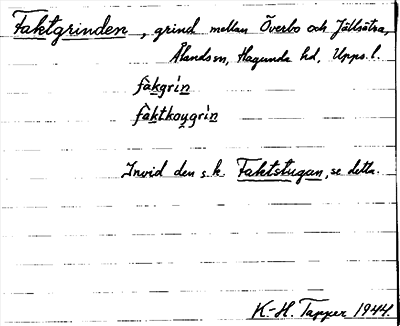 Faktgrinden, grind mellan Överbo och Jällsätra,
Ålands sn, Hagunda hd, Upps. l.
fàkgrín
fàktkougrín
Invid den s.k. Faktstugan, se detta.
K.-H. Tapper 1944.